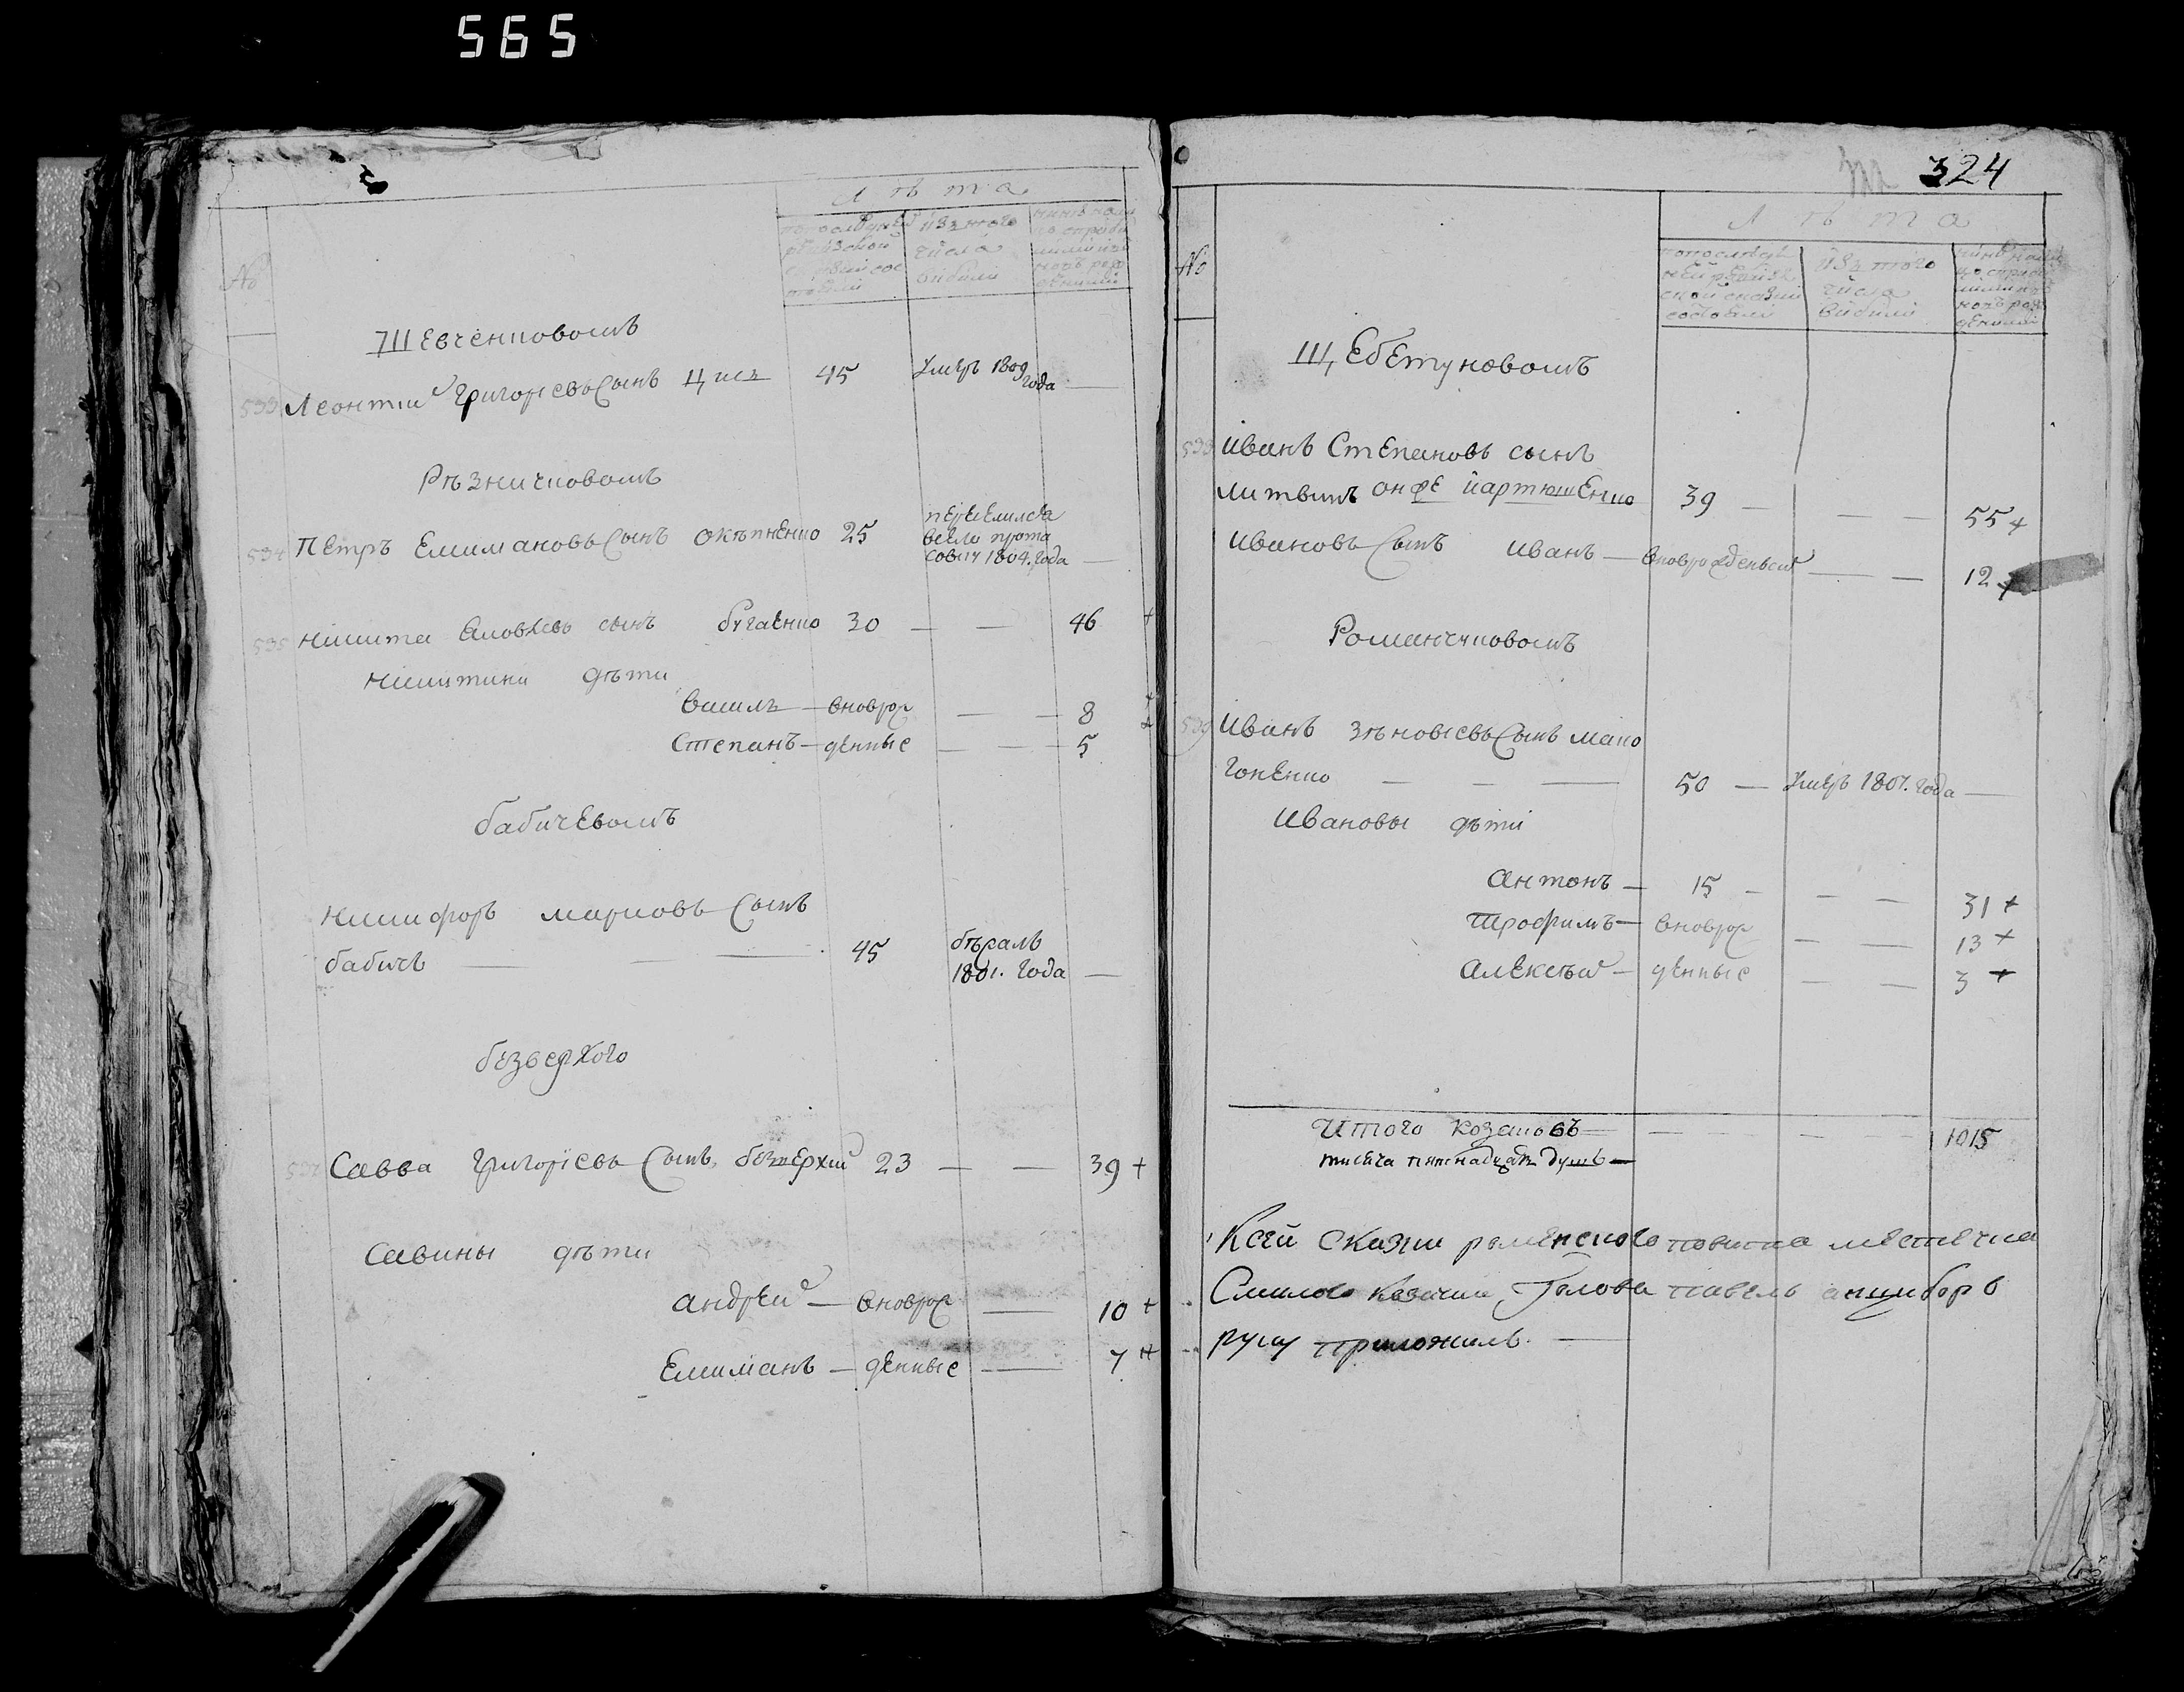 565
Лѣта
№
по последней ревизской скаски состояли
изъ того числа выбыли
Шевченковомъ
533 Леонтий Григориевъ Сынъ 45 Умеръ 1809 года —
Рѣзничковомъ
534 Петръ Елимановъ Сынъ 25 переселился
в село прота
совку 1804. года —
535 Никита Яковлевъ сынъ бугаенко 30 — — 46 +
Никитини дѣти
Василь — вновро — — 8 +
Степанъ — жденные — — 5 +
бабичевомъ
Никифоръ марковъ Сынъ
бабичъ — — — 45 бѣжалъ
1801. года —
безверхого
537 Савва Григориевъ Сынъ безверхий 23 — — 39 +
Савины дѣти
андрей — вновро — 10 +
Елиманъ — жденные — 7 +
324
Лѣта
№
по последней ревизской скаски состояли
изъ того числа выбыли
Щебетуновомъ
538 Иванъ Степановъ сынъ
литвинъ онже 39 — — — 55 +
Ивановъ Сынъ Иванъ — вноврожденный — — 12 +
Романчуковомъ
539 Иванъ Зѣновиевъ Сынъ мако
гоненко — — — 50 — Умеръ 1807. года —
Ивановы дѣти
антонъ — 15 — — — 31 +
трофимъ — вновро — — 13 +
алексѣй — жденные — — 3 +
Итого козаковъ — — — — 1015
тисяча пятнадцать душъ —
К сей сказки роменского повита местечка
Смилого козачий Голова павелъ анцыборъ
руку приложилъ. —